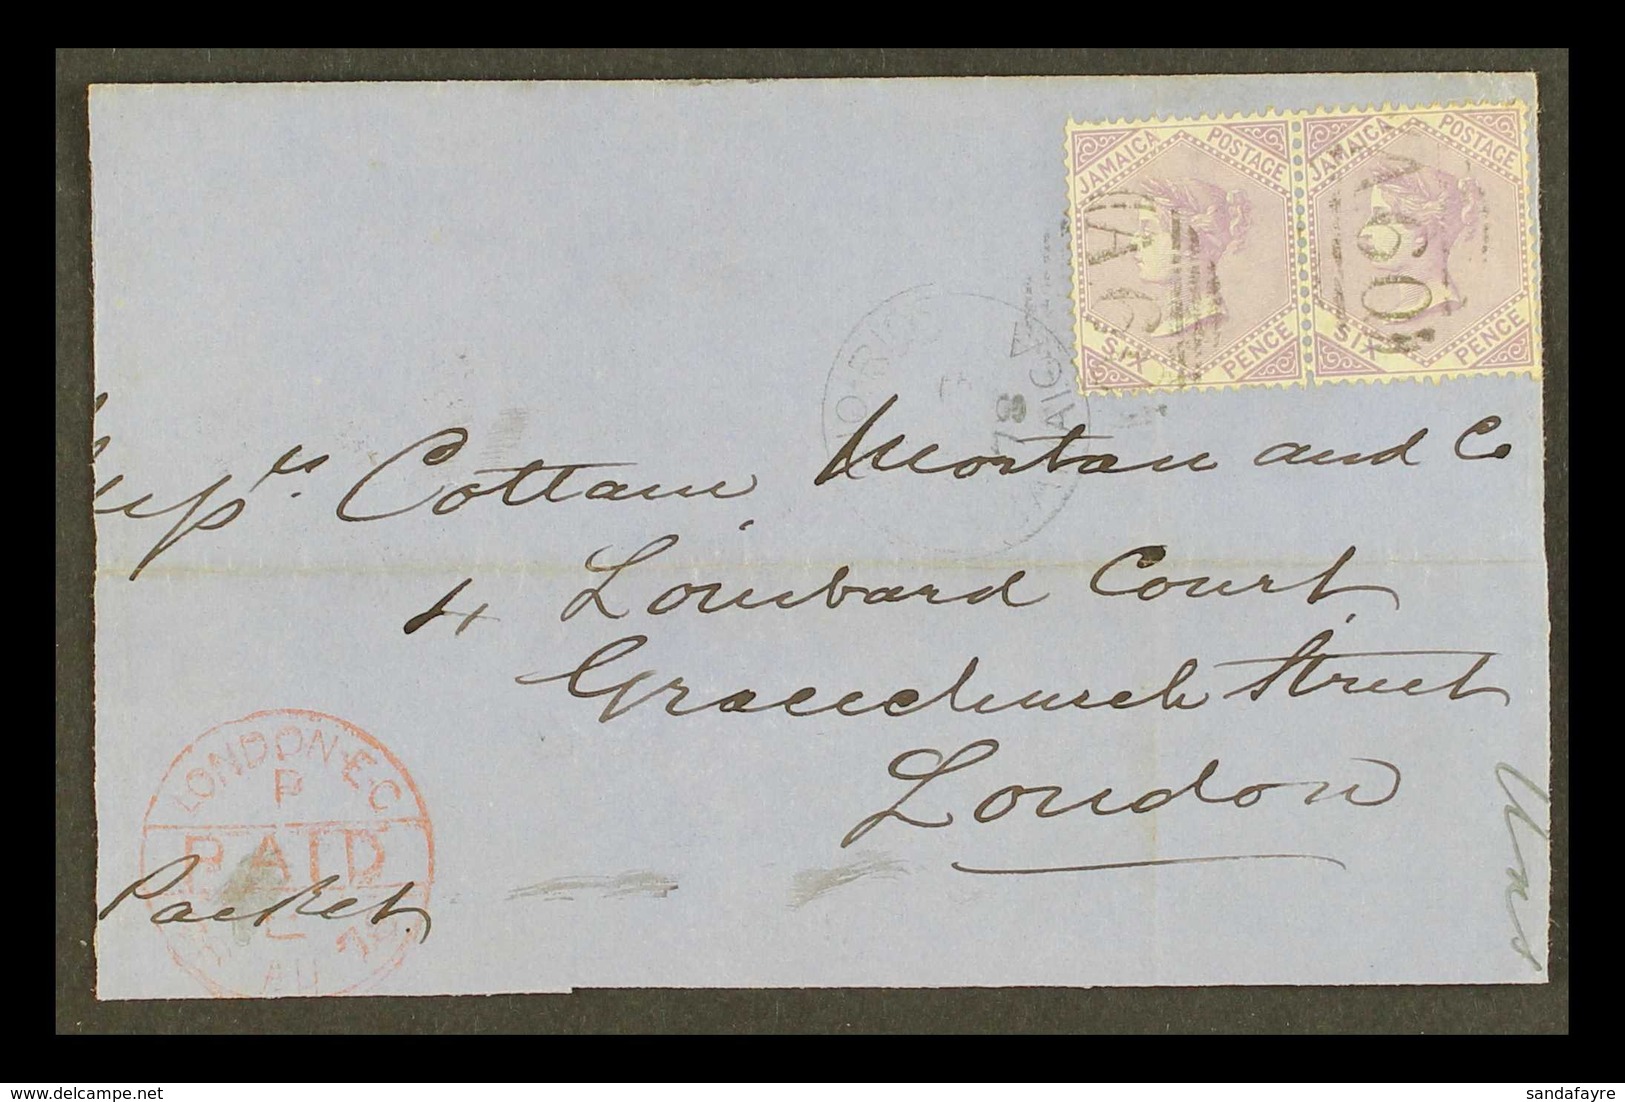 JAMAICA POSTAGE
SIX PENCE
JAMAICA POSTAGE
SIX PENCE
A 60
78
Cottam Mortan and Co
4 Lombard Court
Gracechurch Street
London
LONDON·E.C.
P
PAID
AU
Packet
sandafayre.com